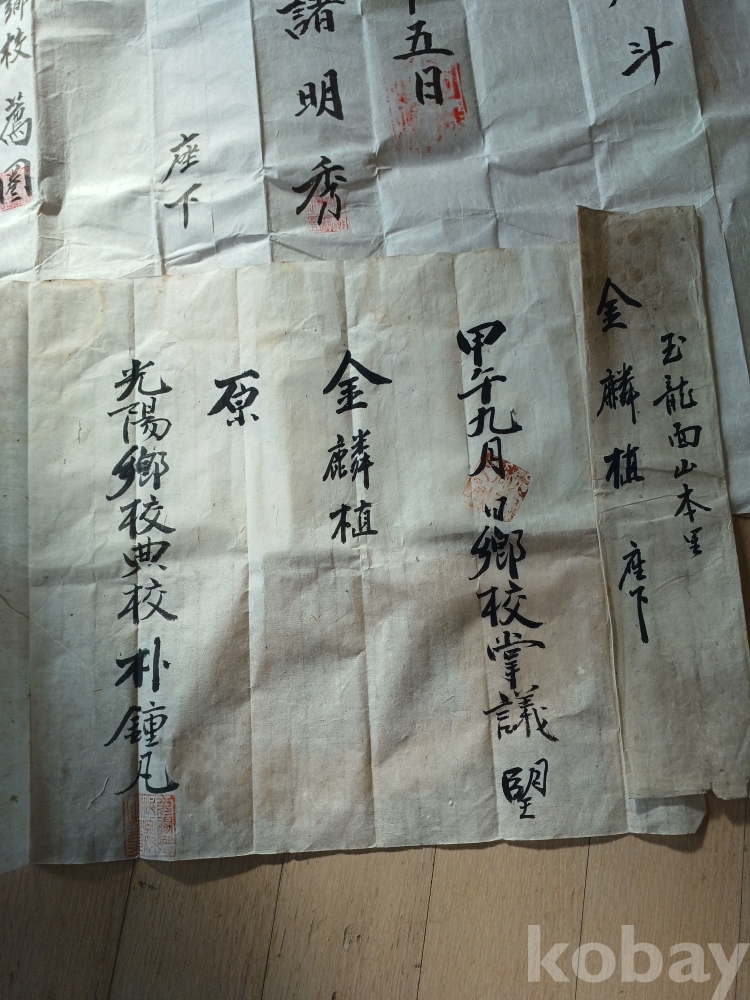 斗
五日
諸明秀
座下
鄉校 薦
玉龍面山本里
金麟植 座下
甲午九月 日鄉校掌議 朢
金麟植
原
光陽鄉校典校 朴鍾凡
kobay